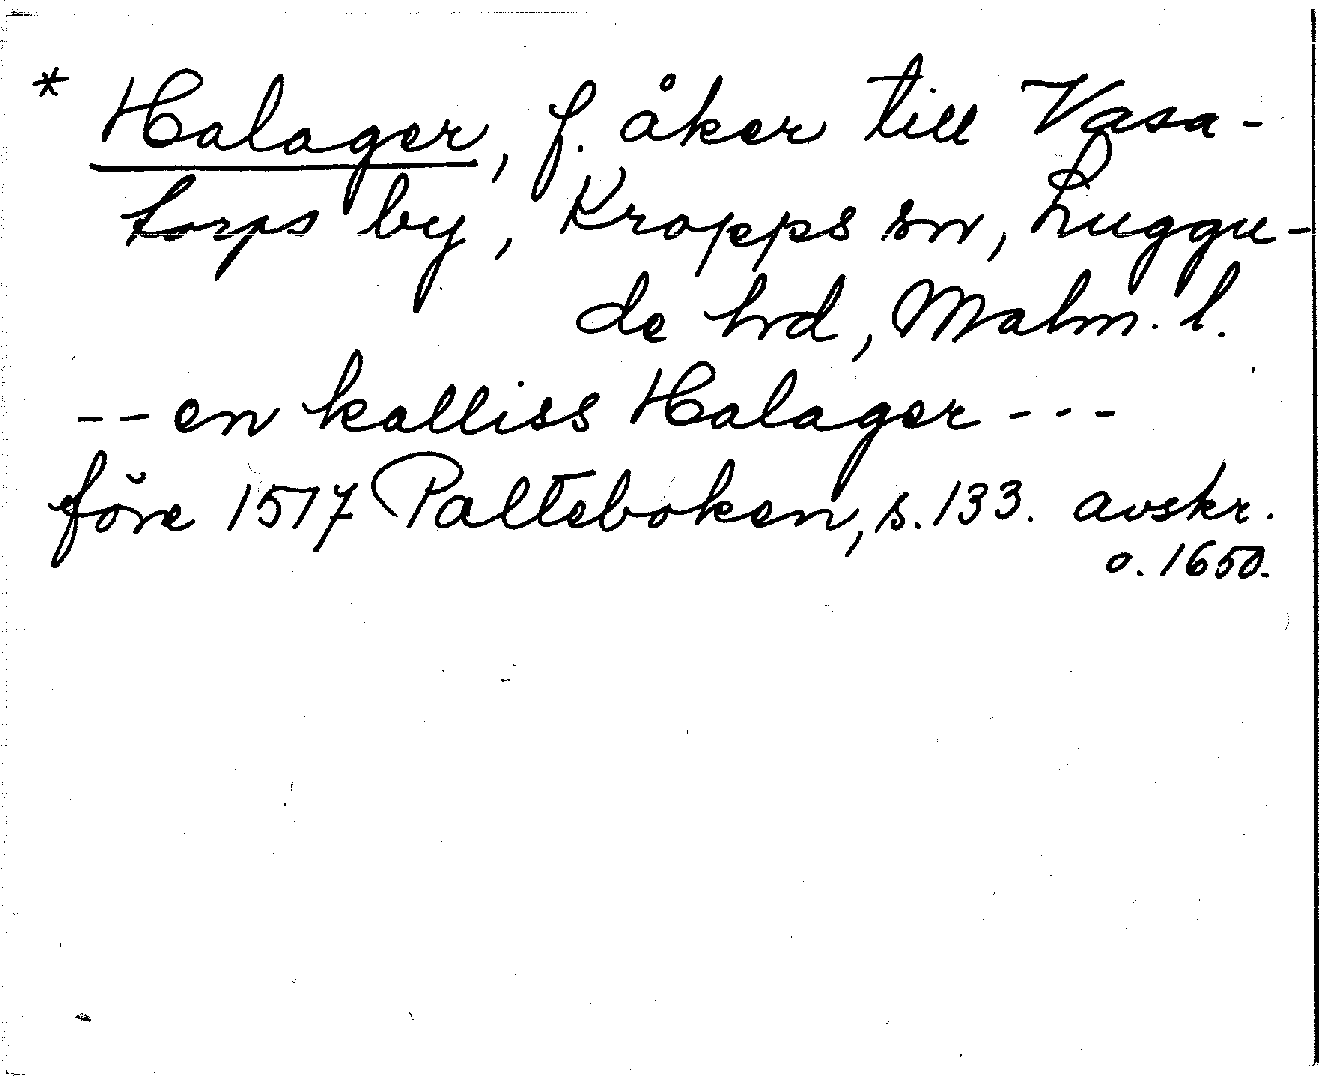 * Halager, f. åker till Vasa-
torps by, Kropps sn, Luggu-
de hrd, Malm. l.
-- en kalliss Halager ---
före 1517 Palteboken, s. 133. avskr.
o. 1650.